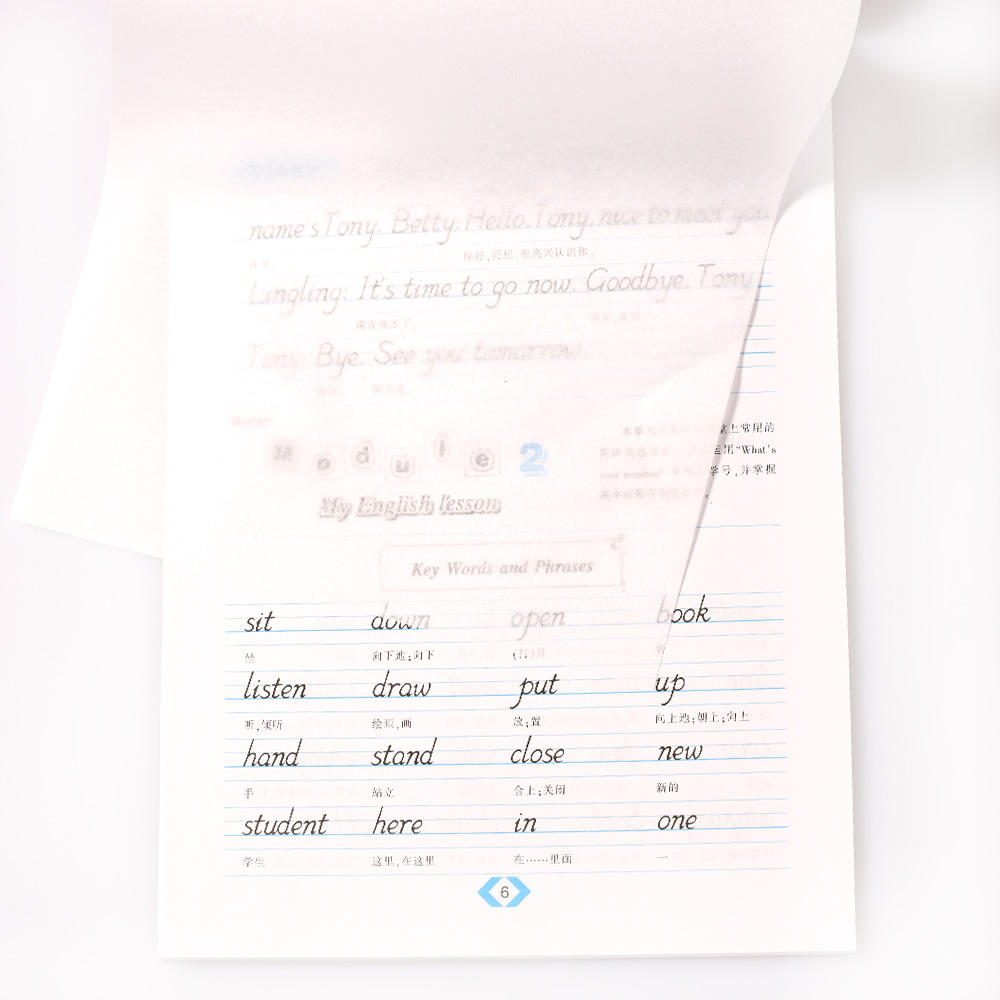 name's Tony. Betty: Hello, Tony, nice to meet you.
你好,托尼,很高兴认识你。
Lingling: It's time to go now. Goodbye, Tony.
现在该走了。 再见,托尼。
Tony: Bye. See you tomorrow.
再见。 明天见。
堂上常用的
运用"What's
学号,并掌握
Module 2
My English lesson
Key Words and Phrases
sit down open book
坐 向下地;向下 (打)开 书
listen draw put up
听,倾听 绘画,画 放;置 向上地;朝上;向上
hand stand close new
手 站立 合上;关闭 新的
student here in one
学生 这里,在这里 在……里面 一
6